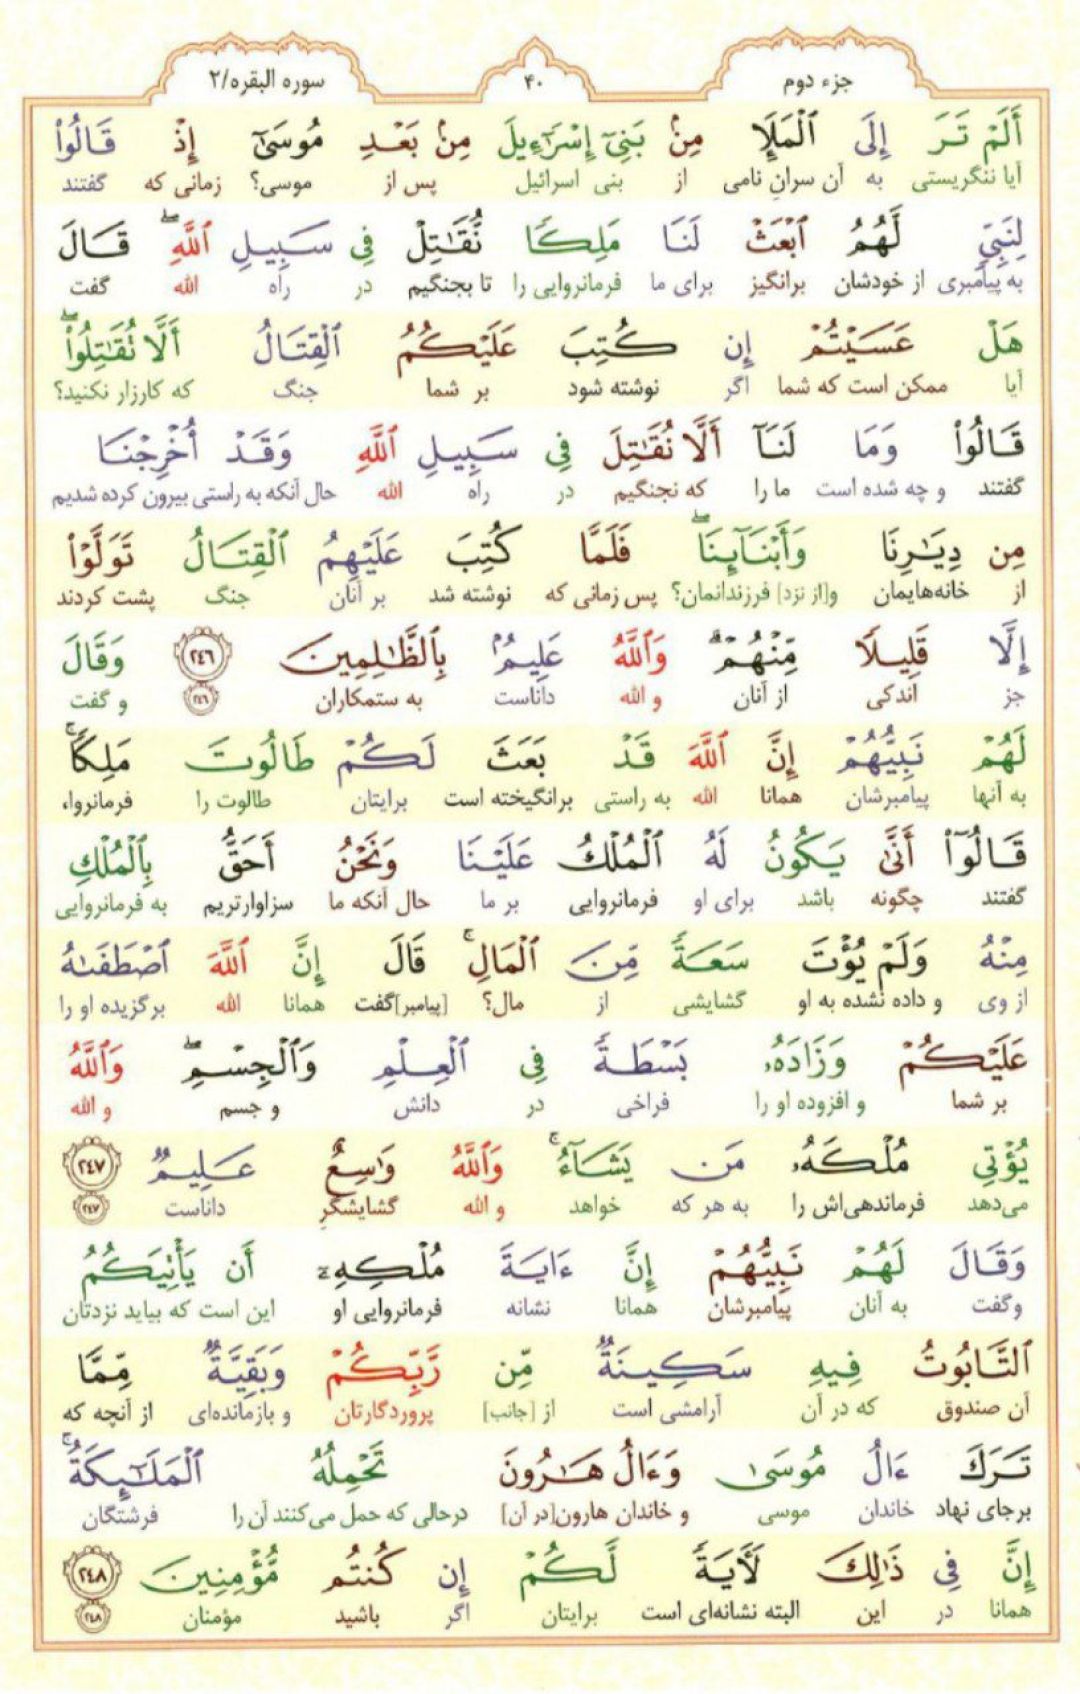 جزء دوم
۴۰
سوره البقره/۲
أَلَمْ تَرَ إِلَى ٱلْمَلَإِ مِنۢ بَنِىٓ إِسْرَٰٓءِيلَ مِنۢ بَعْدِ مُوسَىٰٓ إِذْ قَالُوا۟
آیا ننگریستی به آن سرانِ نامی از بنی اسرائیل پس از موسی؟ زمانی که گفتند
لِنَبِىٍّ لَّهُمُ ٱبْعَثْ لَنَا مَلِكًا نُّقَٰتِلْ فِى سَبِيلِ ٱللَّهِۖ قَالَ
به پیامبری از خودشان برانگیز برای ما فرمانروایی را تا بجنگیم در راه الله گفت
هَلْ عَسَيْتُمْ إِن كُتِبَ عَلَيْكُمُ ٱلْقِتَالُ أَلَّا تُقَٰتِلُوا۟ۖ
آیا ممکن است که شما اگر نوشته شود بر شما جنگ که کارزار نکنید؟
قَالُوا۟ وَمَا لَنَآ أَلَّا نُقَٰتِلَ فِى سَبِيلِ ٱللَّهِ وَقَدْ أُخْرِجْنَا
گفتند و چه شده است ما را که نجنگیم در راه الله حال آنکه به راستی بیرون کرده شدیم
مِن دِيَٰرِنَا وَأَبْنَآئِنَاۖ فَلَمَّا كُتِبَ عَلَيْهِمُ ٱلْقِتَالُ تَوَلَّوْا۟
از خانه‌هایمان و[از نزد] فرزندانمان؟ پس زمانی که نوشته شد بر آنان جنگ پشت کردند
إِلَّا قَلِيلًا مِّنْهُمْۗ وَٱللَّهُ عَلِيمٌۢ بِٱلظَّٰلِمِينَ ٢٤٦ وَقَالَ
جز اندکی از آنان و الله داناست به ستمکاران ۲۴۶ و گفت
لَهُمْ نَبِيُّهُمْ إِنَّ ٱللَّهَ قَدْ بَعَثَ لَكُمْ طَالُوتَ مَلِكًاۚ
به آنها پیامبرشان همانا الله به راستی برانگیخته است برایتان طالوت را فرمانروا،
قَالُوٓا۟ أَنَّىٰ يَكُونُ لَهُ ٱلْمُلْكُ عَلَيْنَا وَنَحْنُ أَحَقُّ بِٱلْمُلْكِ
گفتند چگونه باشد برای او فرمانروایی بر ما حال آنکه ما سزاوارتریم به فرمانروایی
مِنْهُ وَلَمْ يُؤْتَ سَعَةً مِّنَ ٱلْمَالِۚ قَالَ إِنَّ ٱللَّهَ ٱصْطَفَىٰهُ
از وی و داده نشده به او گشایشی از مال؟ [پیامبر]گفت همانا الله برگزیده او را
عَلَيْكُمْ وَزَادَهُۥ بَسْطَةً فِى ٱلْعِلْمِ وَٱلْجِسْمِۖ وَٱللَّهُ
بر شما و افزوده او را فراخی در دانش و جسم و الله
يُؤْتِى مُلْكَهُۥ مَن يَشَآءُۚ وَٱللَّهُ وَٰسِعٌ عَلِيمٌ ٢٤٧
می‌دهد فرماندهی‌اش را به هر که خواهد و الله گشایشگرِ داناست ۲۴۷
وَقَالَ لَهُمْ نَبِيُّهُمْ إِنَّ ءَايَةَ مُلْكِهِۦٓ أَن يَأْتِيَكُمُ
وگفت به آنان پیامبرشان همانا نشانه فرمانروایی او این است که بیاید نزدتان
ٱلتَّابُوتُ فِيهِ سَكِينَةٌ مِّن رَّبِّكُمْ وَبَقِيَّةٌ مِّمَّا
آن صندوق که در آن آرامشی است از [جانب] پروردگارتان و بازمانده‌ای از آنچه که
تَرَكَ ءَالُ مُوسَىٰ وَءَالُ هَٰرُونَ تَحْمِلُهُ ٱلْمَلَٰٓئِكَةُۚ
برجای نهاد خاندان موسی و خاندان هارون[در آن] درحالی که حمل می‌کنند آن را فرشتگان
إِنَّ فِى ذَٰلِكَ لَءَايَةً لَّكُمْ إِن كُنتُم مُّؤْمِنِينَ ٢٤٨
همانا در این البته نشانه‌ای است برایتان اگر باشید مؤمنان ۲۴۸